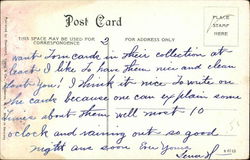 Post Card
THIS SPACE MAY BE USED FOR CORRESPONDENCE
FOR ADDRESS ONLY
PLACE STAMP HERE
2
want Torn cards in their collection at
least I like to have them nice and clean
dont You! I think it nice To write on
the cards because one can explain some
Times about them well most 10
oclock and raining out so good
night ans soon Ever Yours